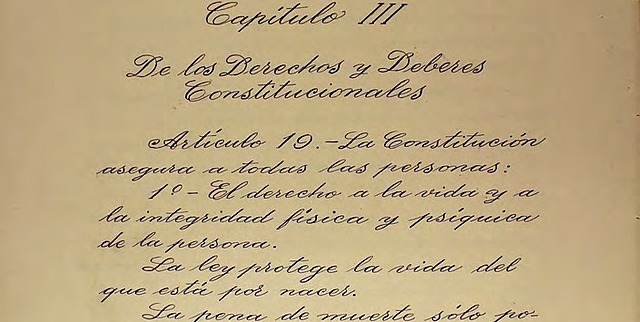 Capítulo III
De los Derechos y Deberes
Constitucionales
Artículo 19.-La Constitución
asegura a todas las personas:
1º-El derecho a la vida y a
la integridad física y psíquica
de la persona.
La ley protege la vida del
que está por nacer.
La pena de muerte sólo po-